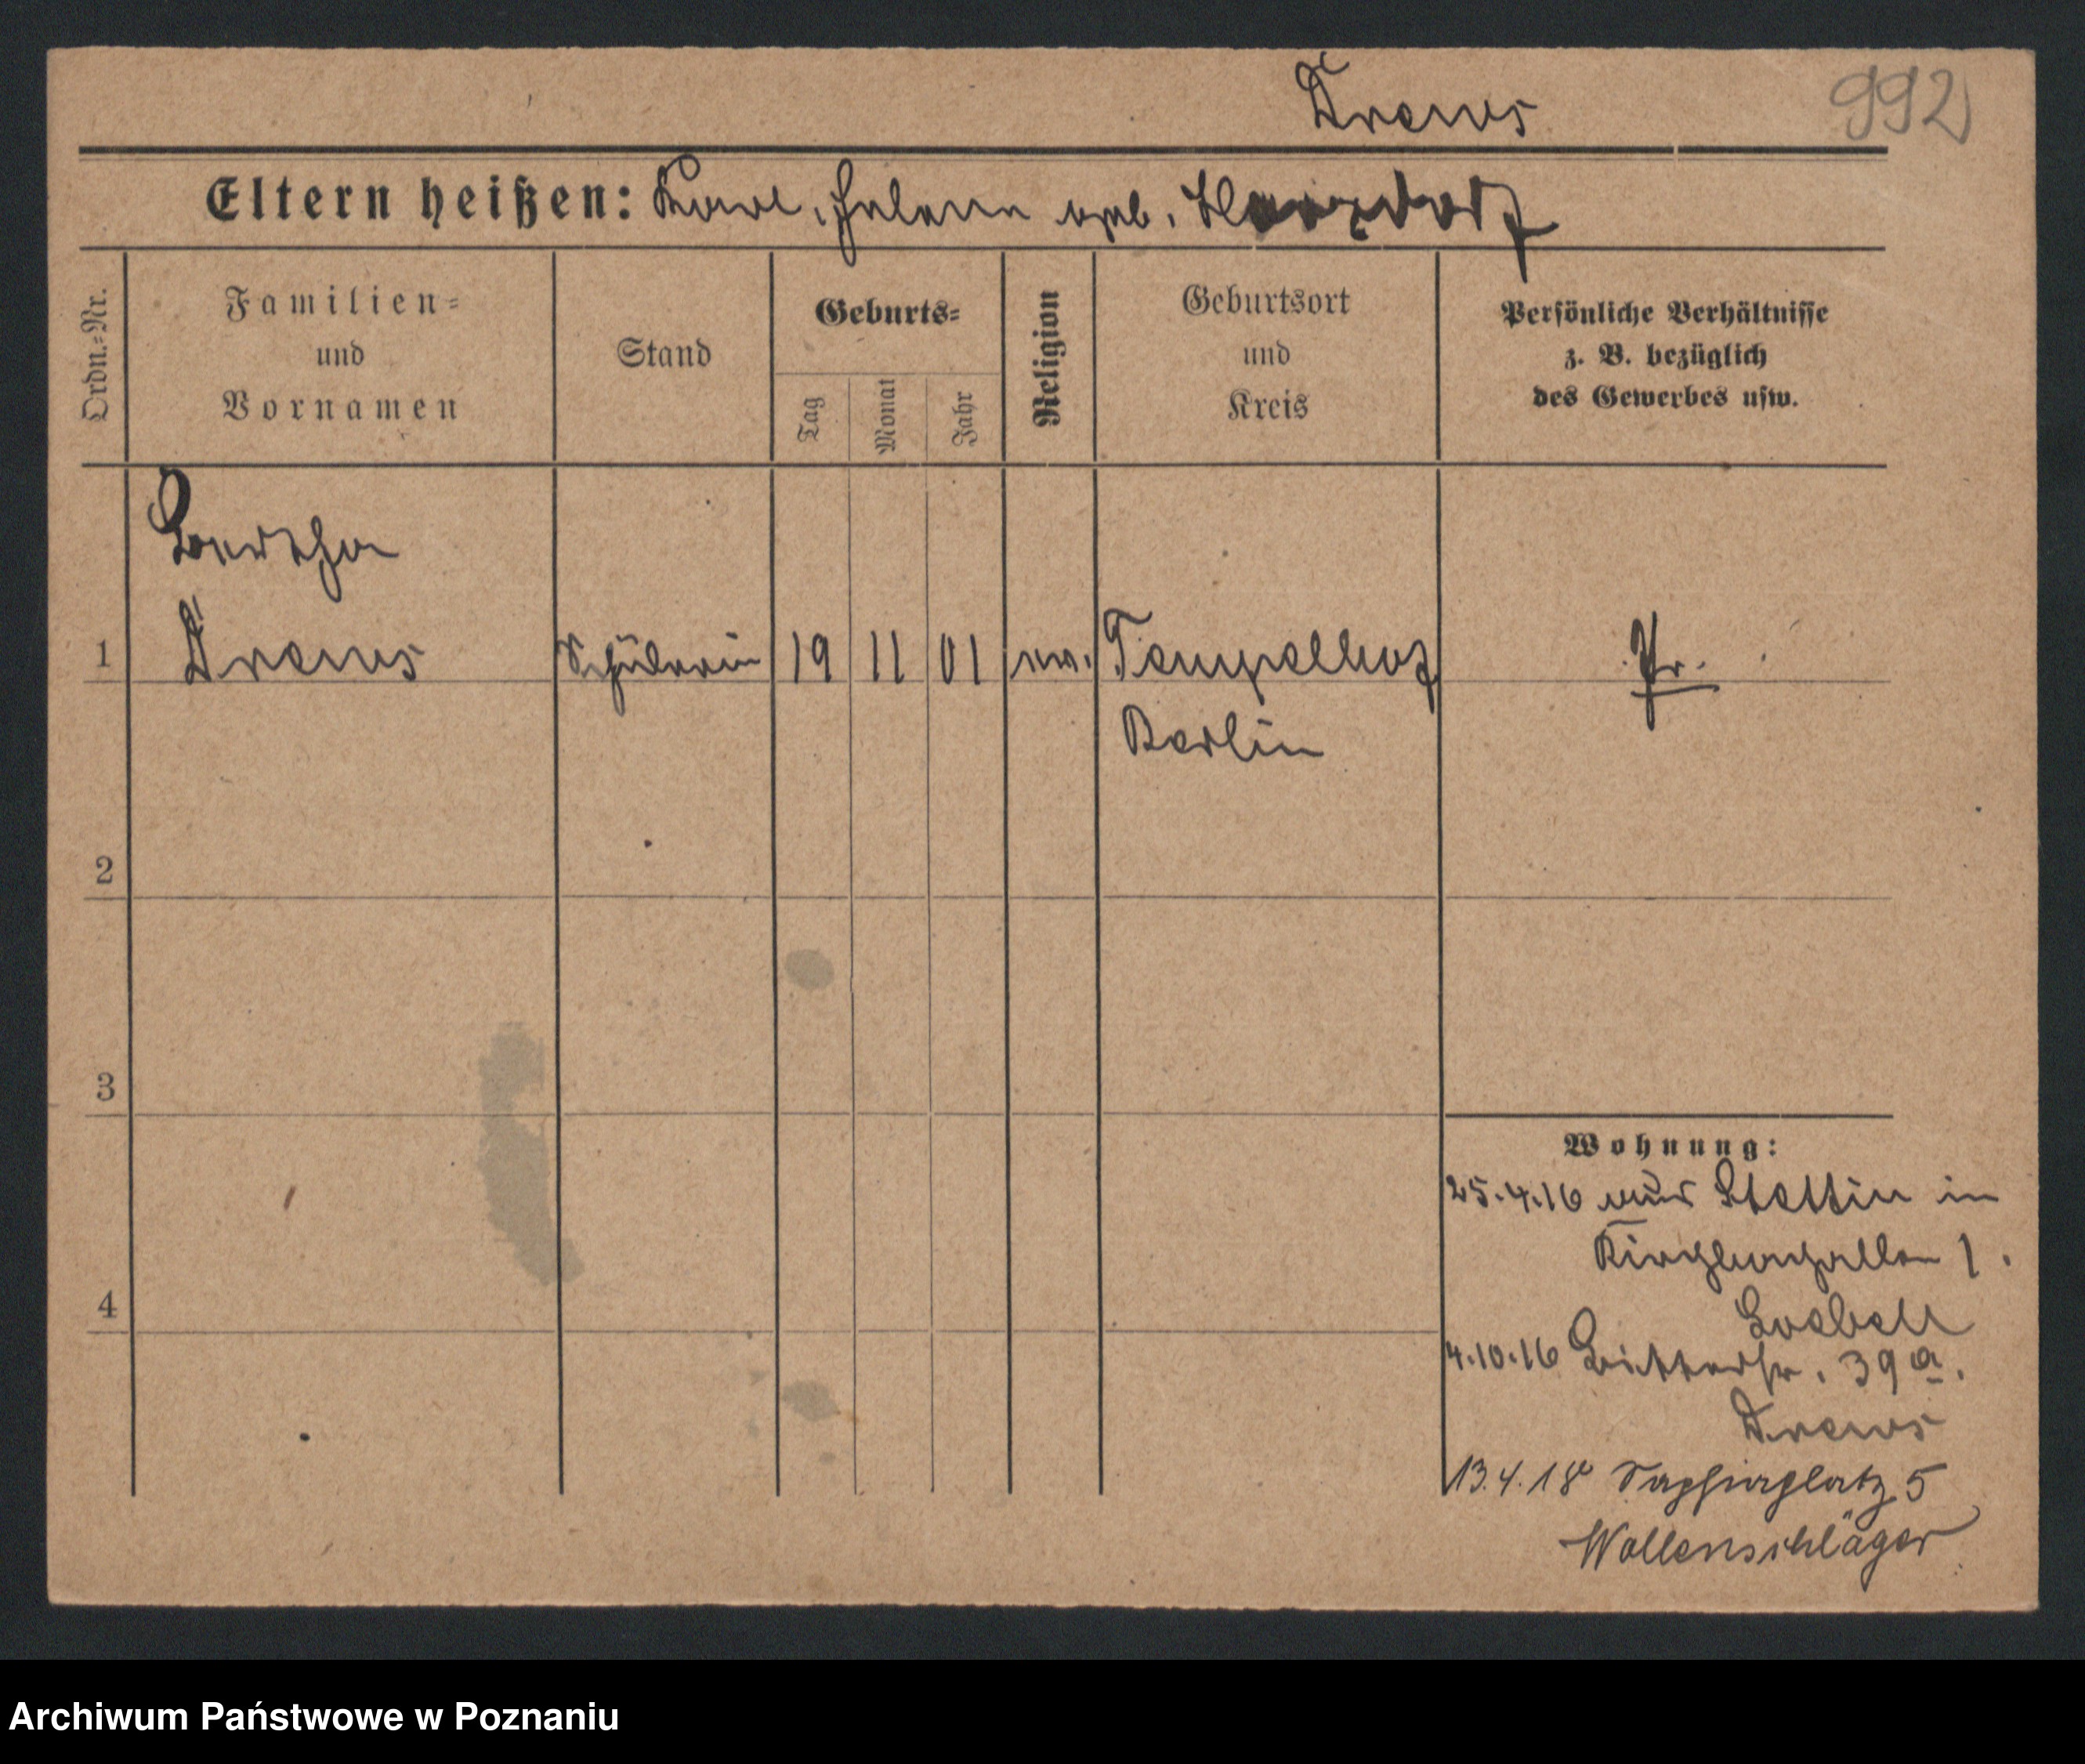 Drews
992
Eltern heißen: Karl, Helene geb.
Ordn.=Nr.
Familien=
und
Vornamen
Stand
Geburts=
Tag
Monat
Jahr
Religion
Geburtsort
und
Kreis
Persönliche Verhältnisse
z. B. bezüglich
des Gewerbes usw.
Bertha
1 Drews Schülerin 19 11 01 ev. Tempelhof Pr.
Berlin
2
3
4
Wohnung:
25.4.16 aus Stettin in
1.
Loebell
4.10.16 39a.
Drews
13.4.18 Sapiehaplatz 5
Wollenschläger
Archiwum Państwowe w Poznaniu